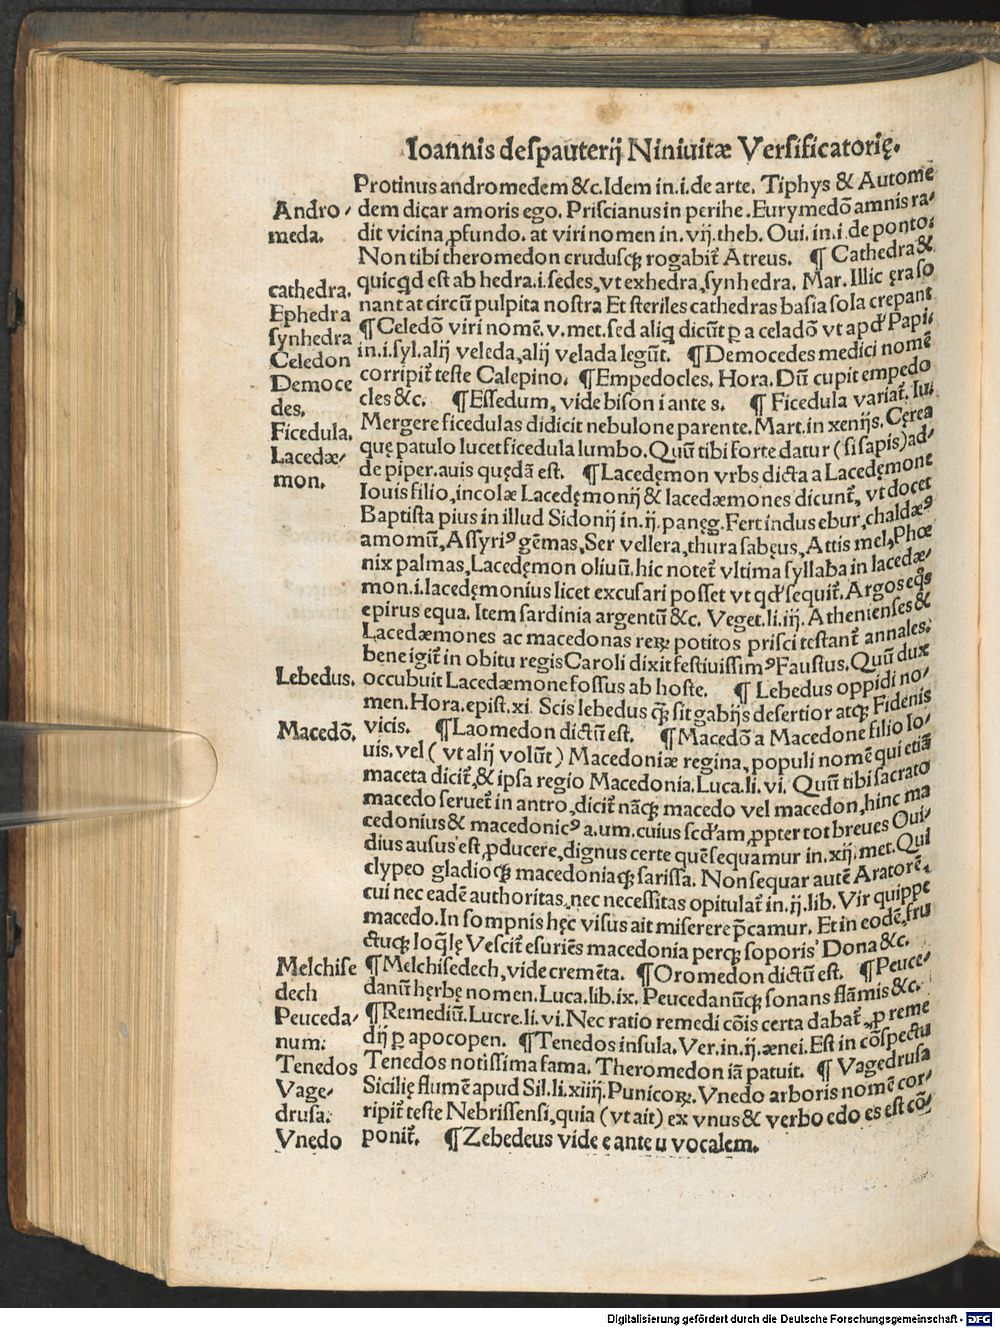 Ioannis despauterij Niniuitæ Versificatorię.
Protinus andromedem &c. Idem in.i.de arte. Tiphys & Autome
dem dicar amoris ego. Priscianus in perihe. Eurymedõ amnis ra-
dit vicina ꝓfundo. at viri nomen in.vij.theb. Oui.in.i.de ponto:
Non tibi theromedon crudusqꝫ rogabit̃ Atreus. ¶ Cathedra &
quicqd est ab hedra.i.sedes, vt exhedra, synhedra. Mar. Illic ęra so
nant at circũ pulpita nostra Et steriles cathedras basia sola crepant
¶ Celedõ viri nomẽ.v.met.sed aliq dicũt ꝑ a celadõ vt apd' Papi-
in.i.syl.alij veleda, alij velada legũt. ¶ Democedes medici nomẽ
corripit̃ teste Calepino. ¶ Empedocles. Hora. Dũ cupit empedo
cles &c. ¶ Essedum, vide bison i ante s. ¶ Ficedula variat̃. Iui
Mergere ficedulas didicit nebulone parente. Mart. in xenijs. Cęrea
quę patulo lucet ficedula lumbo. Quũ tibi forte datur (si sapis) ad-
de piper. auis quędã est. ¶ Lacedęmon vrbs dicta a Lacedęmone
Iouis filio, incolæ Lacedęmonij & lacedæmones dicunt̃, vt docet
Baptista pius in illud Sidonij in.ij.panęg. Fert indus ebur, chaldæꝰ
amomũ, Assyriꝰ gẽmas, Ser vellera, thura sabęus, Attis mel, Phœ
nix palmas, Lacedęmon oliuũ. hic notet̃ vltima syllaba in lacedæ-
mon.i.lacedęmonius licet excusari posset vt qd' sequit̃. Argos eqꝰs
epirus equa. Item sardinia argentũ &c. Veget.li.iij. Athenienses &
Lacedæmones ac macedonas reꝝ potitos prisci testant̃ annales.
bene igit̃ in obitu regis Caroli dixit festiuissimꝰ Faustus. Quũ dux
occubuit Lacedæmone fossus ab hoste. ¶ Lebedus oppidi no-
men. Hora.epist.xi. Scis lebedus qꝫ sit gabijs desertior atqꝫ Fidenis
vicis. ¶ Laomedon dictũ est. ¶ Macedõ a Macedone filio Io-
uis, vel (vt alij volũt) Macedoniæ regina, populi nomẽ qui etiã
maceta dicit̃, & ipsa regio Macedonia. Luca.li.vi. Quũ tibi sacrato
macedo seruet̃ in antro, dicit̃ nãqꝫ macedo vel macedon, hinc ma
cedonius & macedonicꝰ a.um. cuius scd'am ꝓpter tot breues Oui-
dius ausus est ꝓducere, dignus certe quẽ sequamur in.xij.met. Qui
clypeo gladioqꝫ macedoniaqꝫ sarissa. Non sequar autẽ Aratorẽ,
cui nec eadẽ authoritas, nec necessitas opitulat̃ in.ij.lib. Vir quippe
macedo. In sompnis hęc visus ait miserere p̃camur. Et in eodẽ, fru
ctuqꝫ loq̃lę Vescit̃ esuriẽs macedonia perqꝫ soporis' Dona &c.
¶ Melchisedech, vide cremẽta. ¶ Oromedon dictũ est. ¶ Peuce-
danũ hęrbę nomen. Luca.lib.ix. Peucedanũqꝫ sonans flãmis &c.
¶ Remediũ. Lucre.li.vi. Nec ratio remedi cõis certa dabat̃, ꝑ reme
dij ꝑ apocopen. ¶ Tenedos insula. Ver.in.ij.ænei. Est in cõspectu
Tenedos notissima fama. Theromedon iã patuit. ¶ Vagedrusa
Sicilię flumẽ apud Sil.li.xiiij. Punicoꝝ. Vnedo arboris nomẽ cor-
ripit̃ teste Nebrissensi, quia (vt ait) ex vnus & verbo edo es est cõ-
ponit̃. ¶ Zebedeus vide e ante u vocalem.
Andro-
meda.
cathedra.
Ephedra
synhedra
Celedon
Democe
des.
Ficedula.
Lacedæ-
mon.
Lebedus.
Macedõ.
Melchise
dech
Peuceda-
num:
Tenedos
Vage-
drusa:
Vnedo
Digitalisierung gefördert durch die Deutsche Forschungsgemeinschaft - DFG